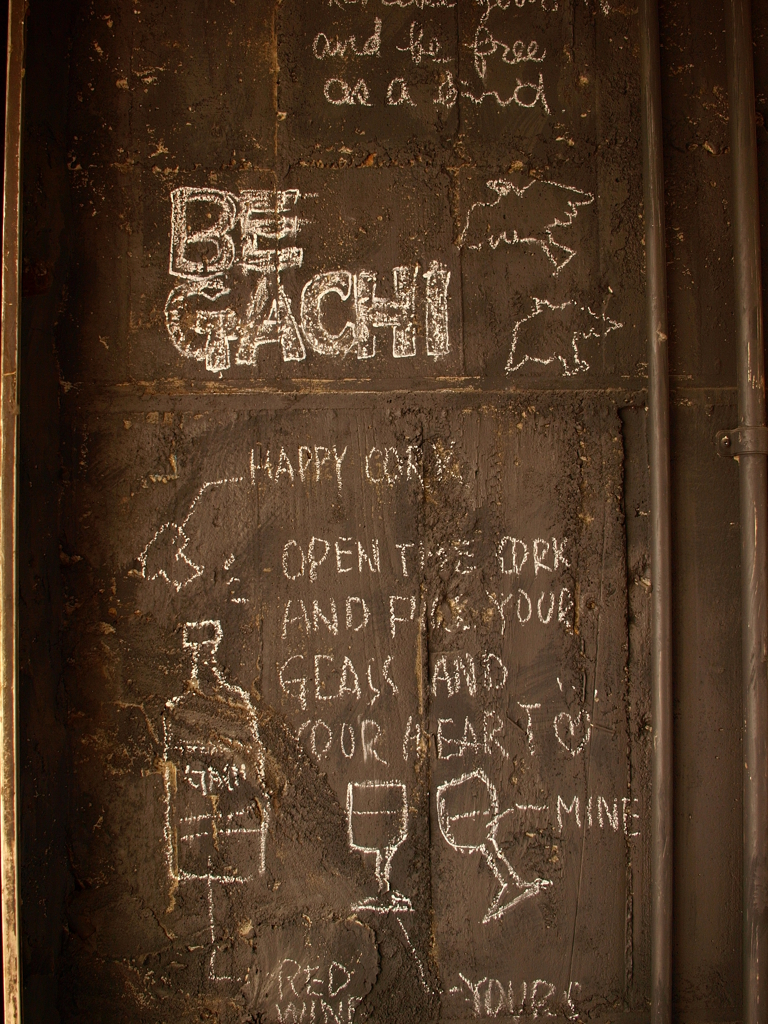 and be free
as a bird
BE
GACHI
HAPPY CORK
OPEN THE CORK
AND YOUR
GLASS AND
YOUR HEART
MINE
RED
WINE
YOURS